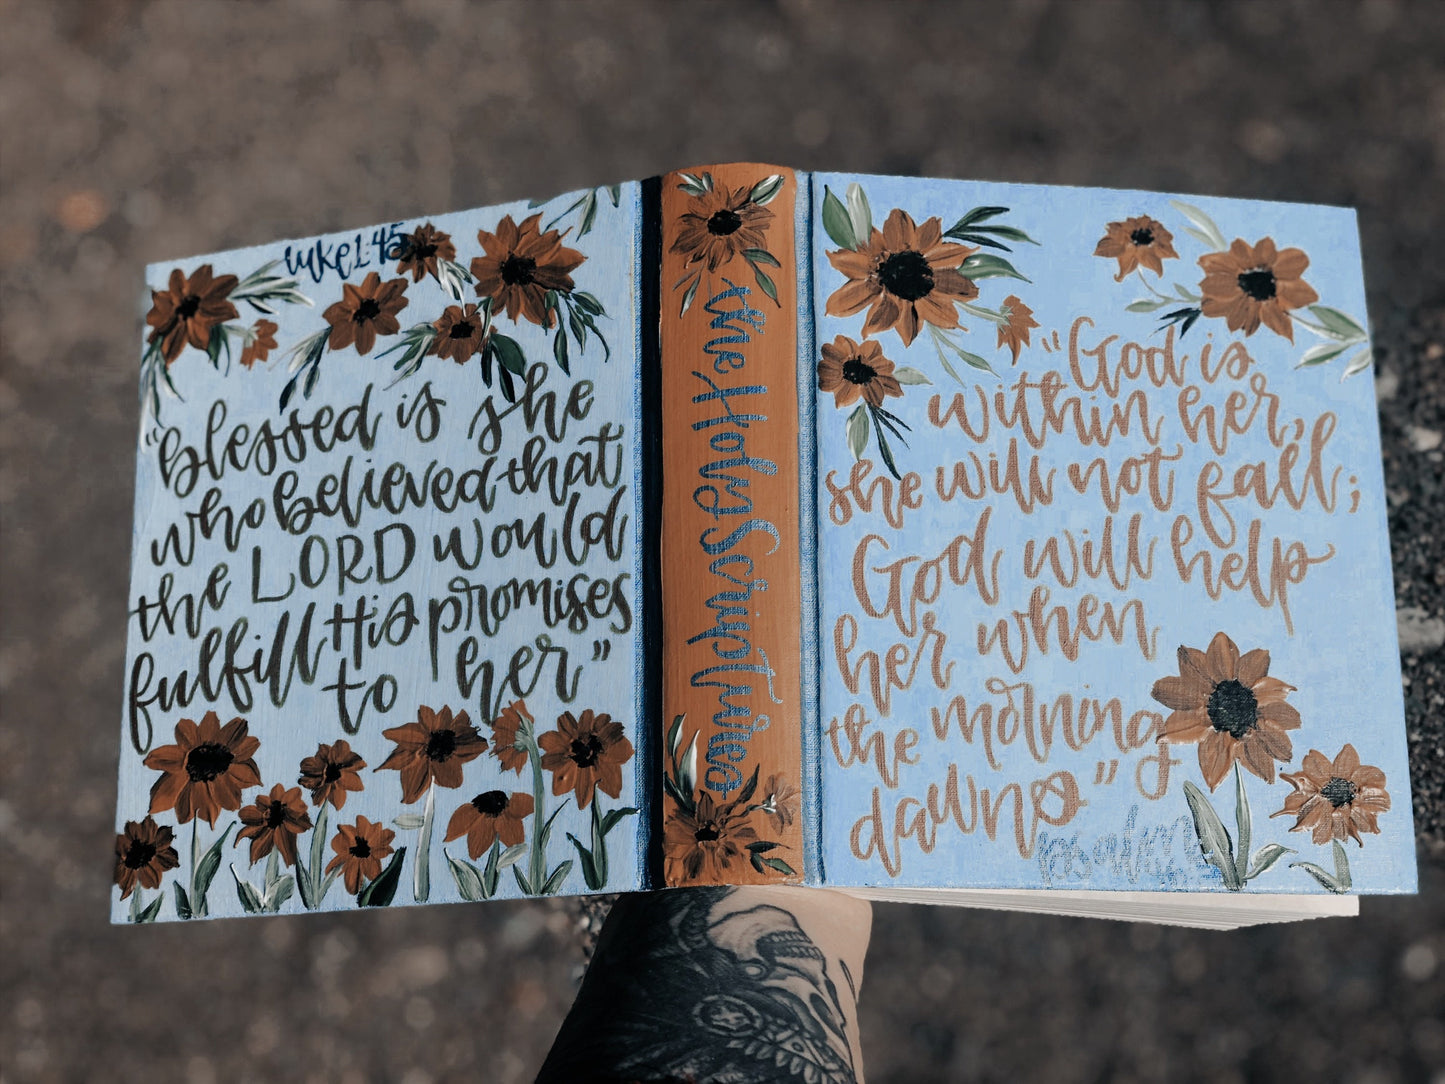 Luke 1:45
"Blessed is she
who believed that
the LORD would
fulfill His promises
to her"
The Holy Scriptures
"God is
within her,
she will not fall;
God will help
her when
the morning
dawns"
Psalm